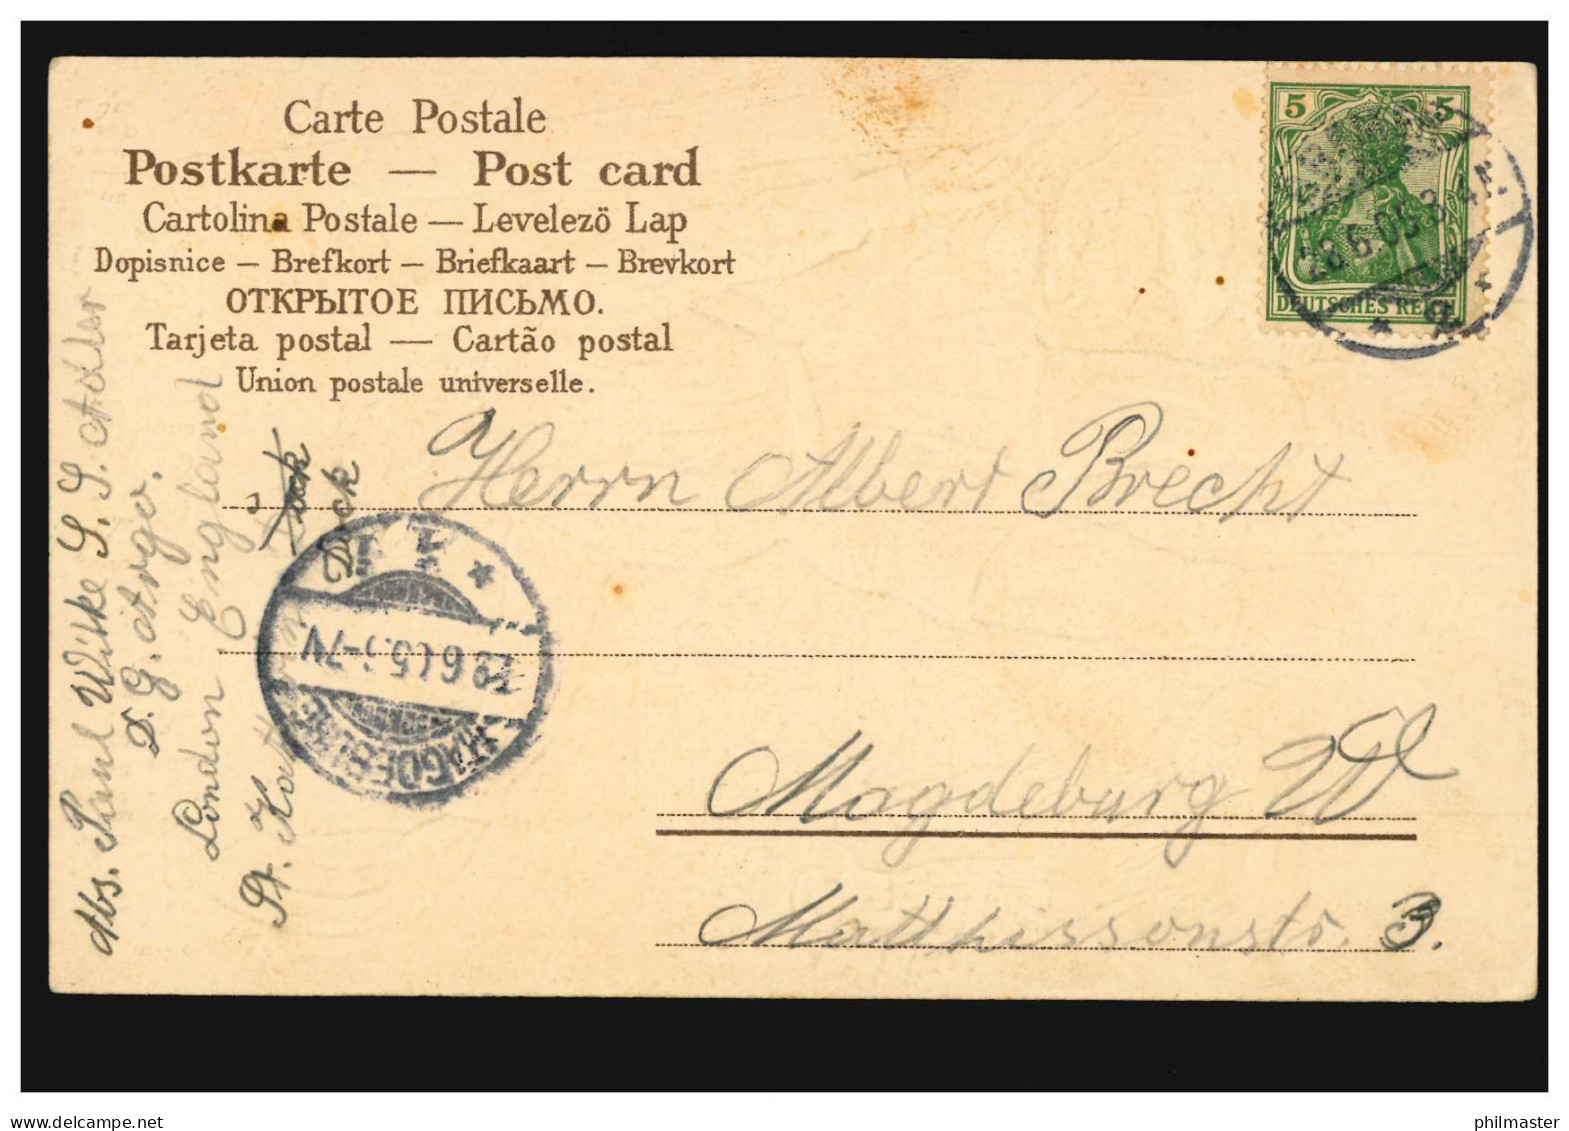 Carte Postale
Postkarte — Post card
Cartolina Postale — Levelező Lap
Dopisnice – Brefkort – Briefkaart – Brevkort
ОТКРЫТОЕ ПИСЬМО.
Tarjeta postal — Cartão postal
Union postale universelle.
5 5
DEUTSCHES REICH
28.6.05. 3-4N.
Herrn Albert Brecht
Magdeburg W
Matthissonstr. 3.
MAGDEBURG
1 1
Abs. Paul Witke S. S. Adler
D. G. Argo.
London England
St. Kath Dock
delcampe.net
philmaster